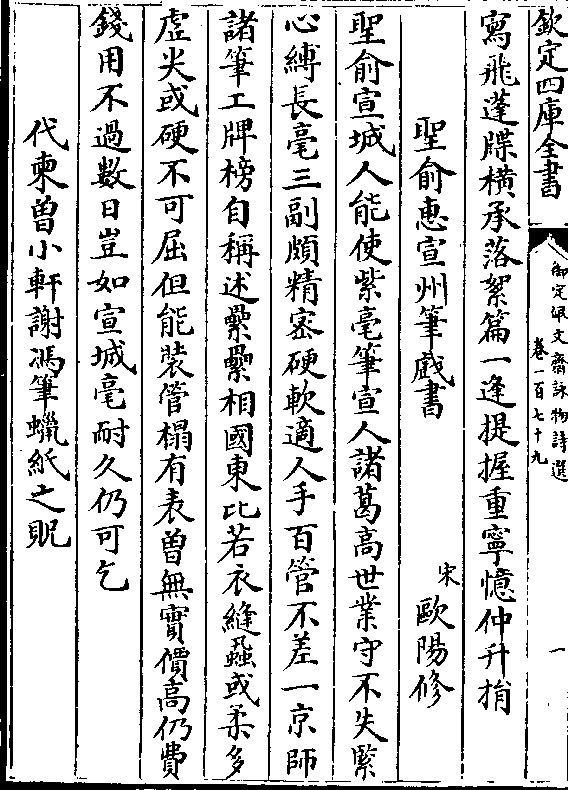 欽定四庫全書
御定佩文齋詠物詩選
卷一百七十九
一
寫飛蓬牒橫承落絮篇一逢提握重寧憶仲升捐
聖俞惠宣州筆戲書
宋
歐陽修
聖俞宣城人能使紫毫筆宣人諸葛高世業守不失緊
心縛長毫三副頗精密硬軟適人手百管不差一京師
諸筆工牌榜自稱述纍纍相國東比若衣縫蝨或柔多
虚尖或硬不可屈但能裝管榻有表曾無實價高仍費
錢用不過數日豈如宣城毫耐久仍可乞
代柬曾小軒謝馮筆蠟紙之貺